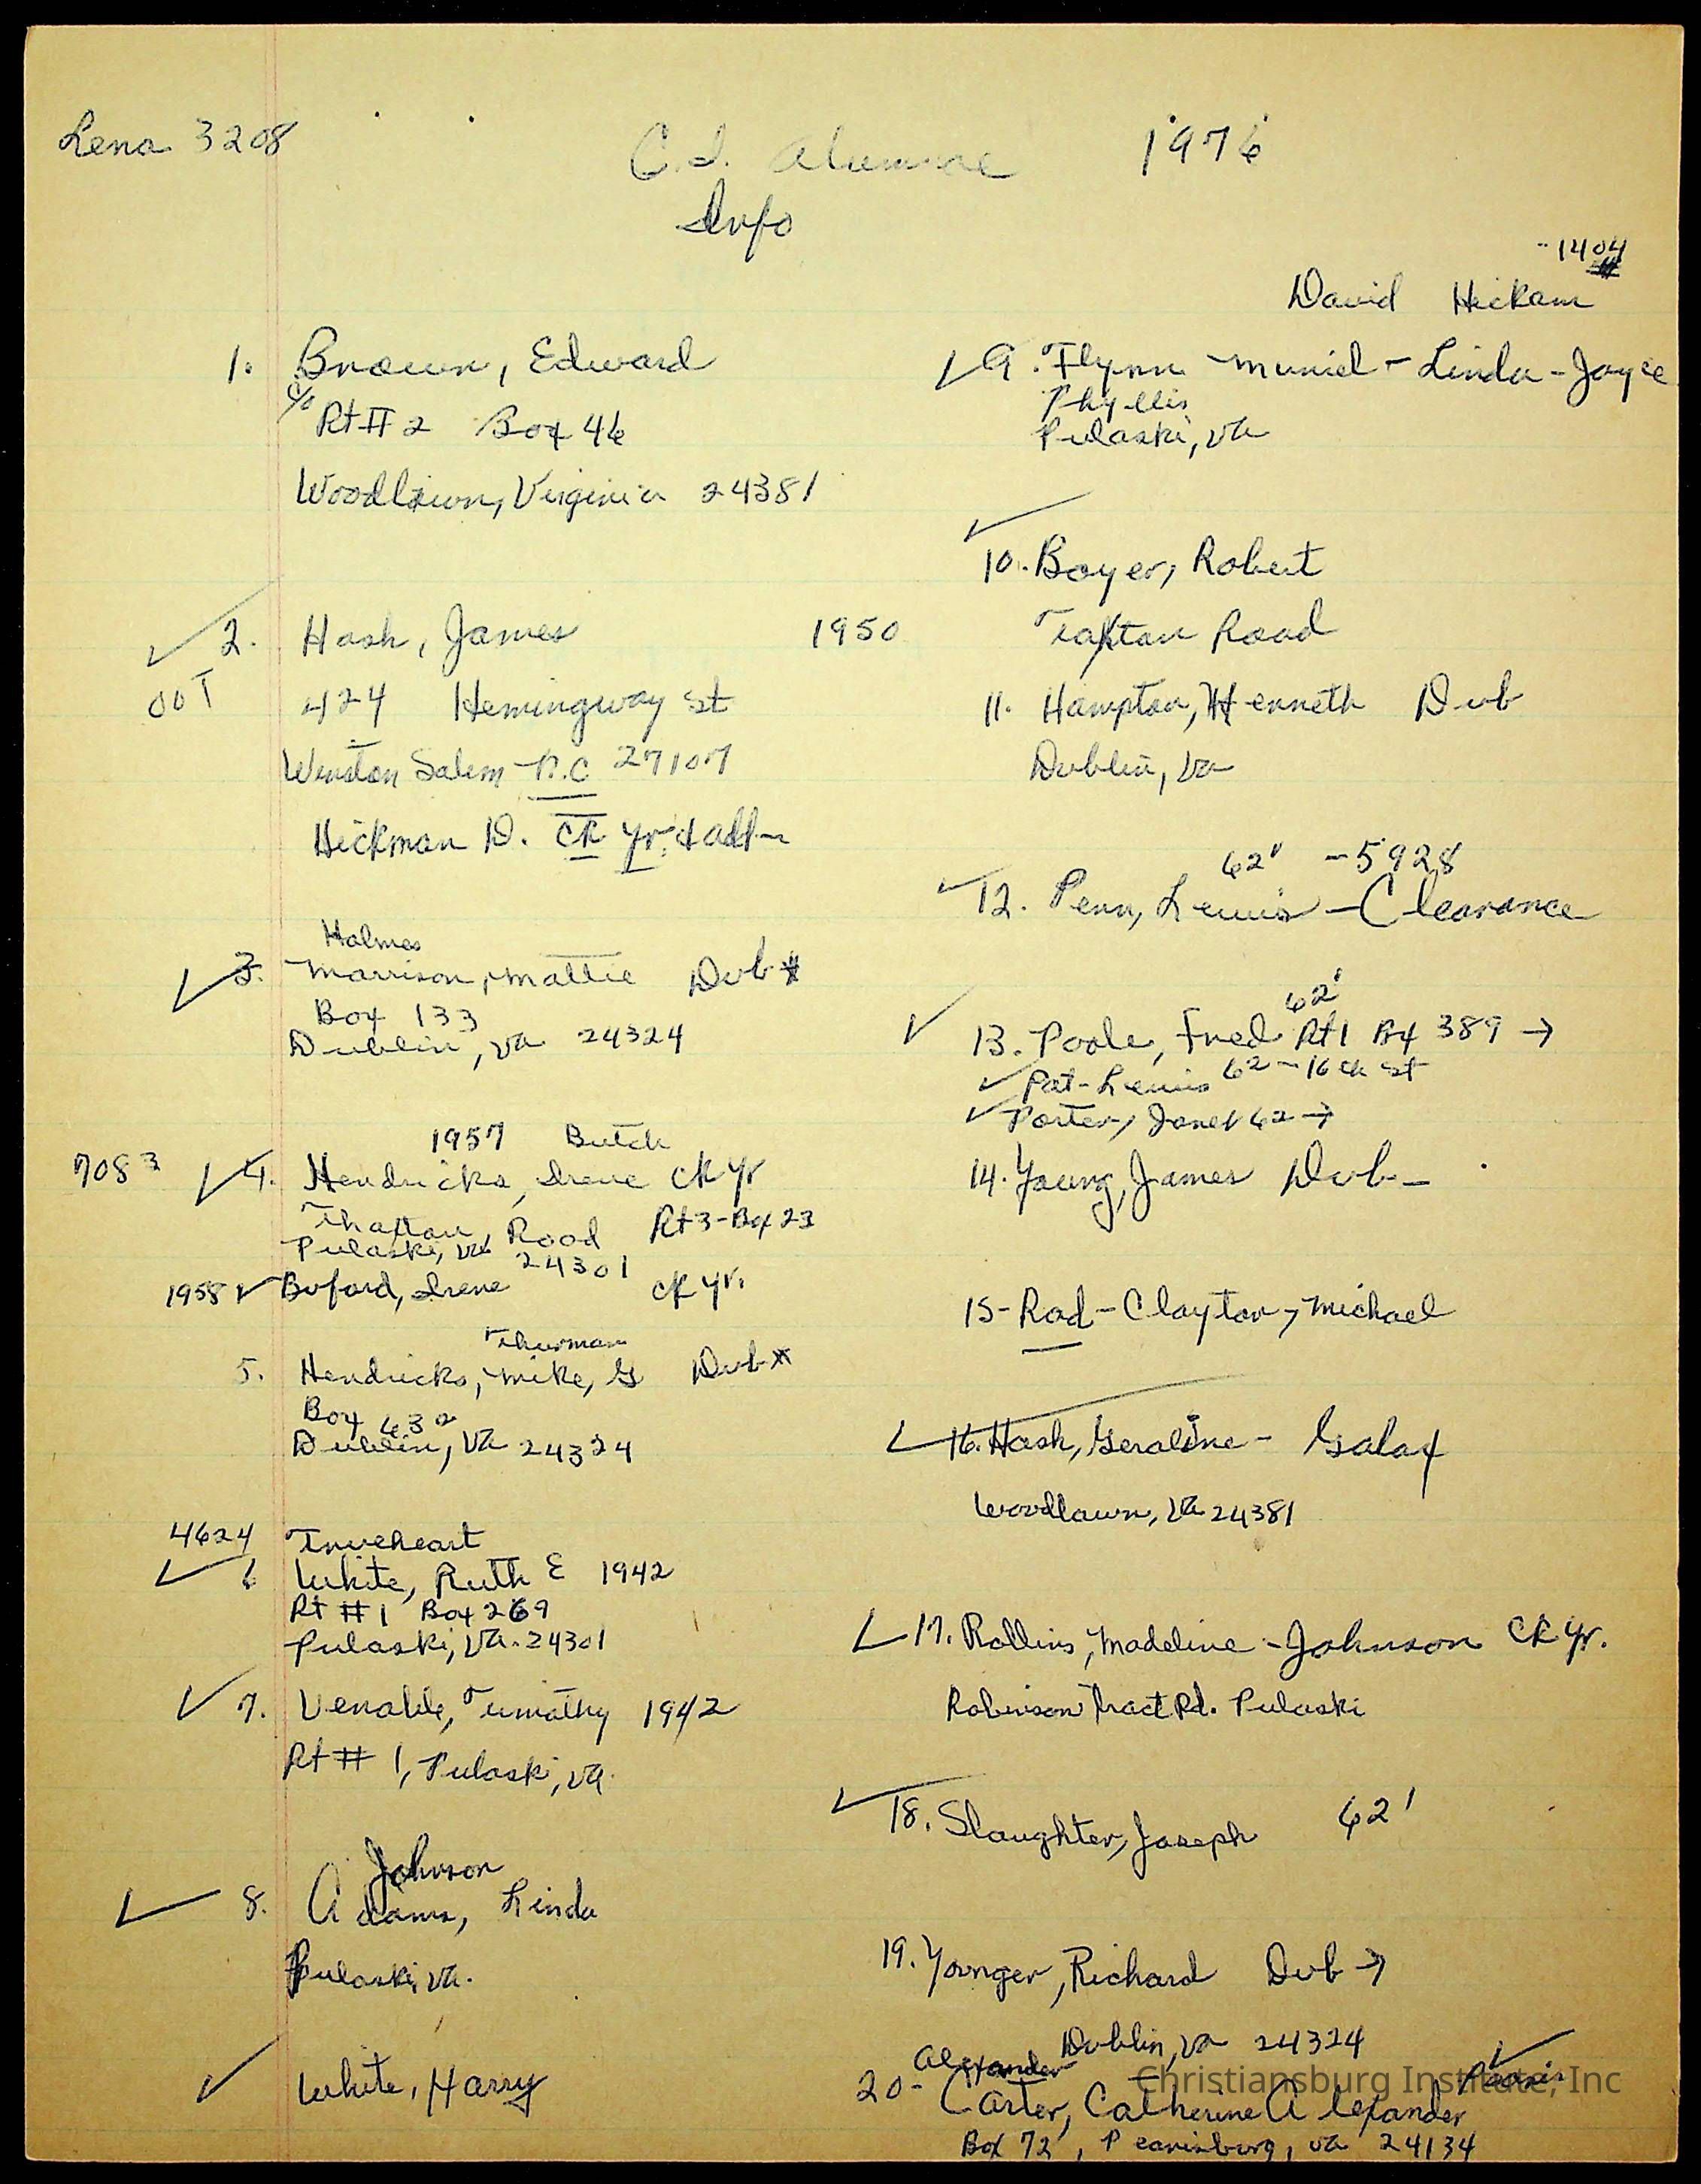 Lena 3208
C.I. Alumnae 1976
Info
1. Brown, Edward
c/o
Rt # 2 Box 46
Woodlawn, Virginia 24381
✓ 2. Hash, James 1950
OOT 424 Hemingway St
Winston Salem N.C 27107
Hickman D. CK yr. & add
Holmes
✓ 3. Morrison, Mattie Dub *
Box 133
Dublin, Va 24324
1957 Butch
7083 ✓ 4. Hendricks, Irene CK yr
Thaxton Road Rt 3-Box 23
Pulaski, Va 24301
1958 ✓ Buford, Irene CK yr.
Thurman
5. Hendricks, Mike, G Dub *
Box 632
Dublin, Va 24324
4624 Trueheart
✓ 6 White, Ruth E 1942
Rt # 1 Box 269
Pulaski, Va. 24301
✓ 7. Venable, Timothy 1942
Rt # 1, Pulaski, Va.
Johnson
✓ 8. Adams, Linda
Pulaski, Va.
✓ White, Harry
-1404
David Hickam
✓ 9. Flynn - Muriel - Linda - Joyce
Phyllis
Pulaski, Va
✓
10. Boyer, Robert
Taxton Road
11. Hampton, Kenneth Dub
Dublin, Va
62' -5928
✓ 12. Penn, Lewis - Clearance
62'
✓ 13. Poole, Fred Rt 1 Bx 389 →
✓ Pat - Lewis 62 - 16th St
✓ Porter, Janet 62 →
14. Young, James Dub -
15 - Rad - Clayton, Michael
✓ 16. Hash, Geraldine - Galax
Woodlawn, Va 24381
✓ 17. Rollins, Madeline - Johnson CK yr.
Robinson Tract Rd. Pulaski
✓ 18. Slaughter, Joseph 62'
19. Younger, Richard Dub →
Dublin, Va 24324
Alexander ✓
20 - Carter, Catherine Alexander
Box 72, Pearisburg, Va 24134
Christiansburg Institute, Inc